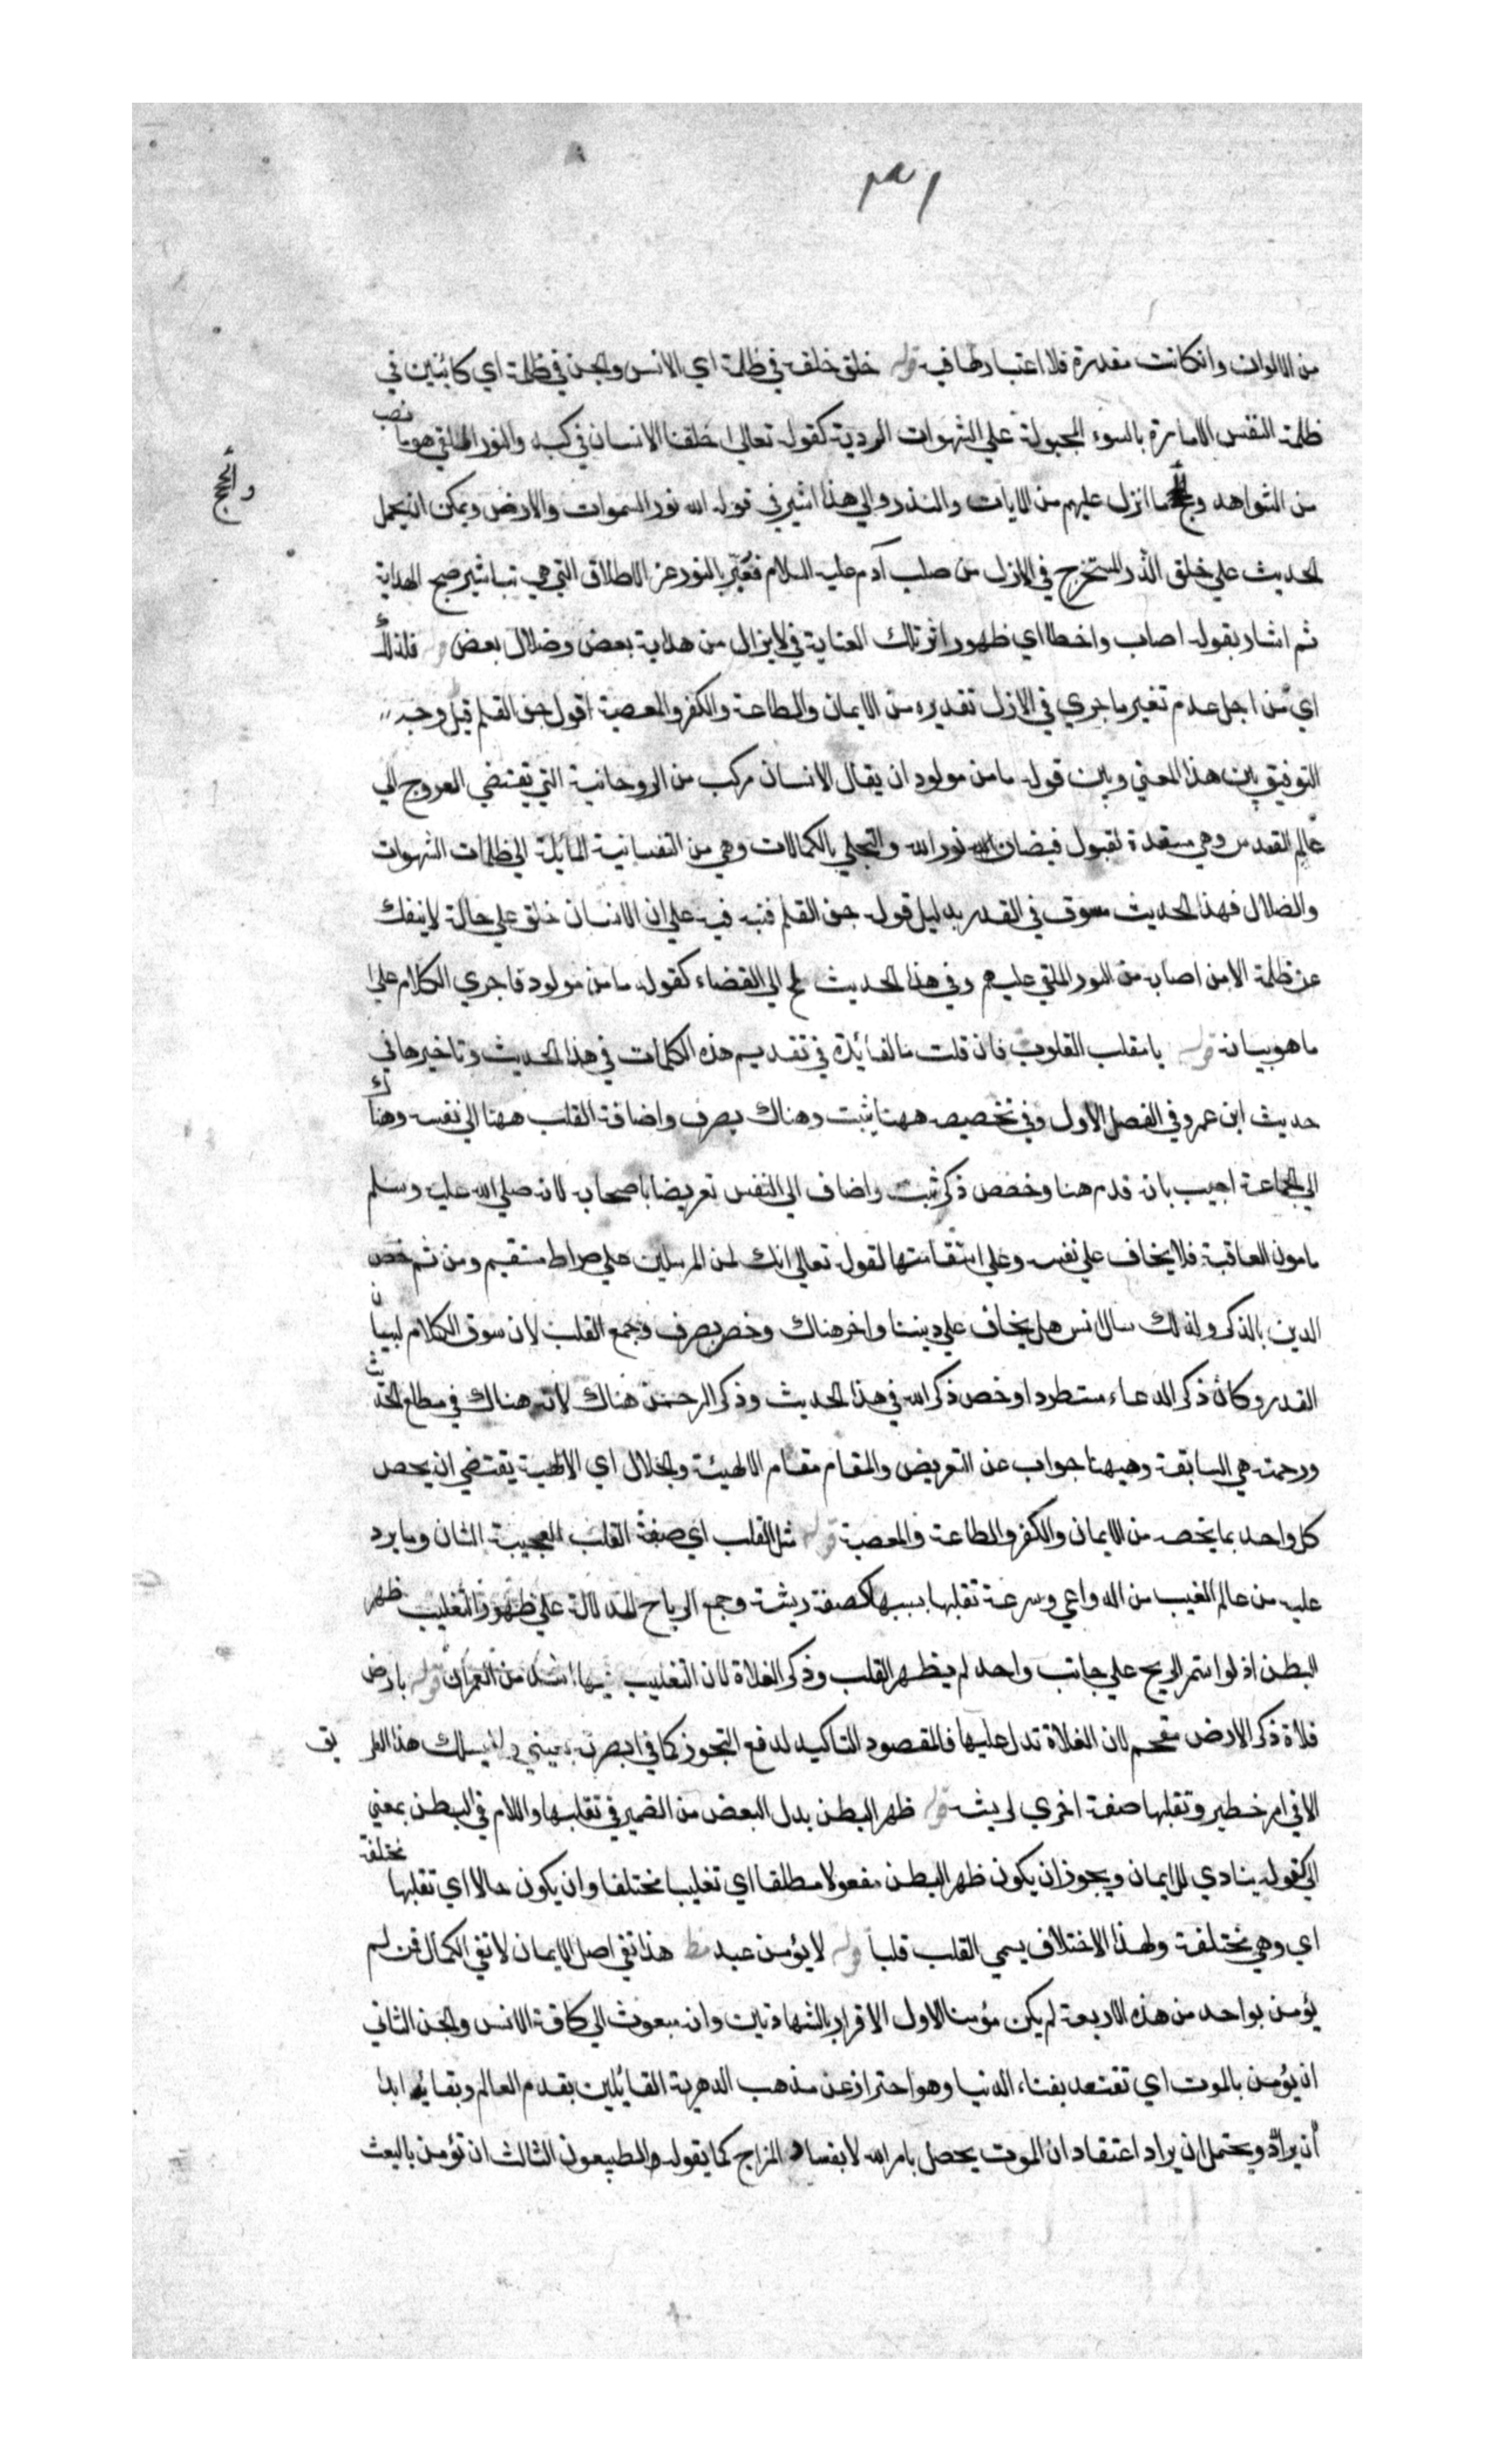 من الالوان وانكانت مقدرة فلا اعتبار لها فيه قوله خلق خلقه في ظلمة اي الانس والجن في ظلمة اي كائنين في
ظلمة النفس الامارة بالسوء المجبولة علي الشهوات الردية كقوله تعالي لقد خلقنا الانسان في كبد والنور الملقي هو ما نصب
من الشواهد والحجج وما انزل عليهم من الايات والنذر والي هذا اشير في قوله الله نور السموات والارض ويمكن ان يحمل
والحجج
الحديث علي خلق الذر المستخرج في الازل من صلب آدم عليه السلام فعُبّر بالنور عن الالطاف التي هي تباشير صبح الهداية
ثم اشار بقوله اصاب واخطا اي ظهور اثر تلك العناية في لايزال من هداية بعض وضلال بعض قوله فلذلك
اي من اجل عدم تغير ما جري في الازل تقديره من الايمان والطاعة والكفر والمعصية اقول جف القلم قيل وجه
التوفيق بين هذا المعني وبين قوله ما من مولود ان يقال الانسان مركب من الروحانية التي يقتضي العروج الي
عالم القدس وهي مستعدة لقبول فيضان نور الله والتحلي بالكمالات وهي من النفسانية المائلة الي ظلمات الشهوات
والضلال فهذا الحديث مسوق في القدر بدليل قوله جف القلم فنبه فيه علي ان الانسان خلق علي حالة لاينفك
عن ظلمة الا من اصابه من النور الملقي عليهم وفي هذا الحديث لمح الي القضاء كقوله ما من مولود فاجري الكلام علي
ما هو بيانه قوله يا مقلب القلوب فان قلت ما الفائدة في تقديم هذه الكلمات في هذا الحديث وتاخيرها في
حديث ابن عمرو في الفصل الاول وفي تخصيصه ههنا يثبت وهناك بصرف واضافة القلب ههنا الي نفسه وهناك
الي الجماعة اجيب بانه قدم هنا وخصص ذكر ثبت واضاف الي النفس تعريضا باصحابه لانه صلي الله عليه وسلم
مامون العاقبة فلا يخاف علي نفسه وعلي استقامتها لقوله تعالي انك لمن المرسلين علي صراط مستقيم ومن ثم خص
الدين بالذكر ولذلك سال انس هل يخاف علي ديننا واخر هناك وخص بصرف وجمع القلب لان سوق الكلام لبيان
القدر وكان ذكر الدعاء مستطردا وخص ذكر الله في هذا الحديث وذكر الرحمن هناك لانه هناك في مطلع الحديث
ورحمته هي السابقة وهيهنا جواب عن التعريض والمقام مقام الالهية والجلال اي الالهية يقتضي ان يحص
كل واحد بما يخصه من الايمان والكفر والطاعة والمعصية قوله مثل القلب اي صفة القلب العجيبة الشان وما يرد
عليه من عالم الغيب من الدواعي وسرعة تقلبها بسببها كصفة ريشة وجمع الرياح للدلالة علي ظهور التغليب ظهر
البطن اذ لو استمر الريح علي جانب واحد لم يظهر القلب وذكر الفلاة لان التغليب فيها اشد من العمران قوله بارض
فلاة ذكر الارض مقحم لان الفلاة تدل عليها فالمقصود التاكيد لدفع التجوز كما في ابصرته بعيني ولم يسلك هذا الطريق
الا في امر خطير وتقلبها صفة اخري لريشة قوله ظهر البطن بدل البعض من الضمير في تقلبها واللام في البطن بمعني
الي كقوله ينادي للايمان ويجوز ان يكون ظهر البطن مفعولا مطلقا اي تغليبا مختلفا وان يكون حالا اي تقلبها مختلفة
اي وهي مختلفة ولهذا الاختلاف يسمي القلب قلبا قوله لا يؤمن عبد مط هذا نفي اصل الايمان لا نفي الكمال فمن لم
يؤمن بواحد من هذه الاربعة لم يكن مؤمنا الاول الاقرار بالشهادتين وانه مبعوث الي كافة الانس والجن الثاني
ان يؤمن بالموت اي تعتقد بفناء الدنيا وهو احتراز عن مذهب الدهرية القايلين بقدم العالم وبقائه ابدا
ان يراد ويحتمل ان يراد اعتقاد ان الموت يحصل بامر الله لا بفساد المزاج كما يقوله والطبيعون الثالث ان تؤمن بالبعث